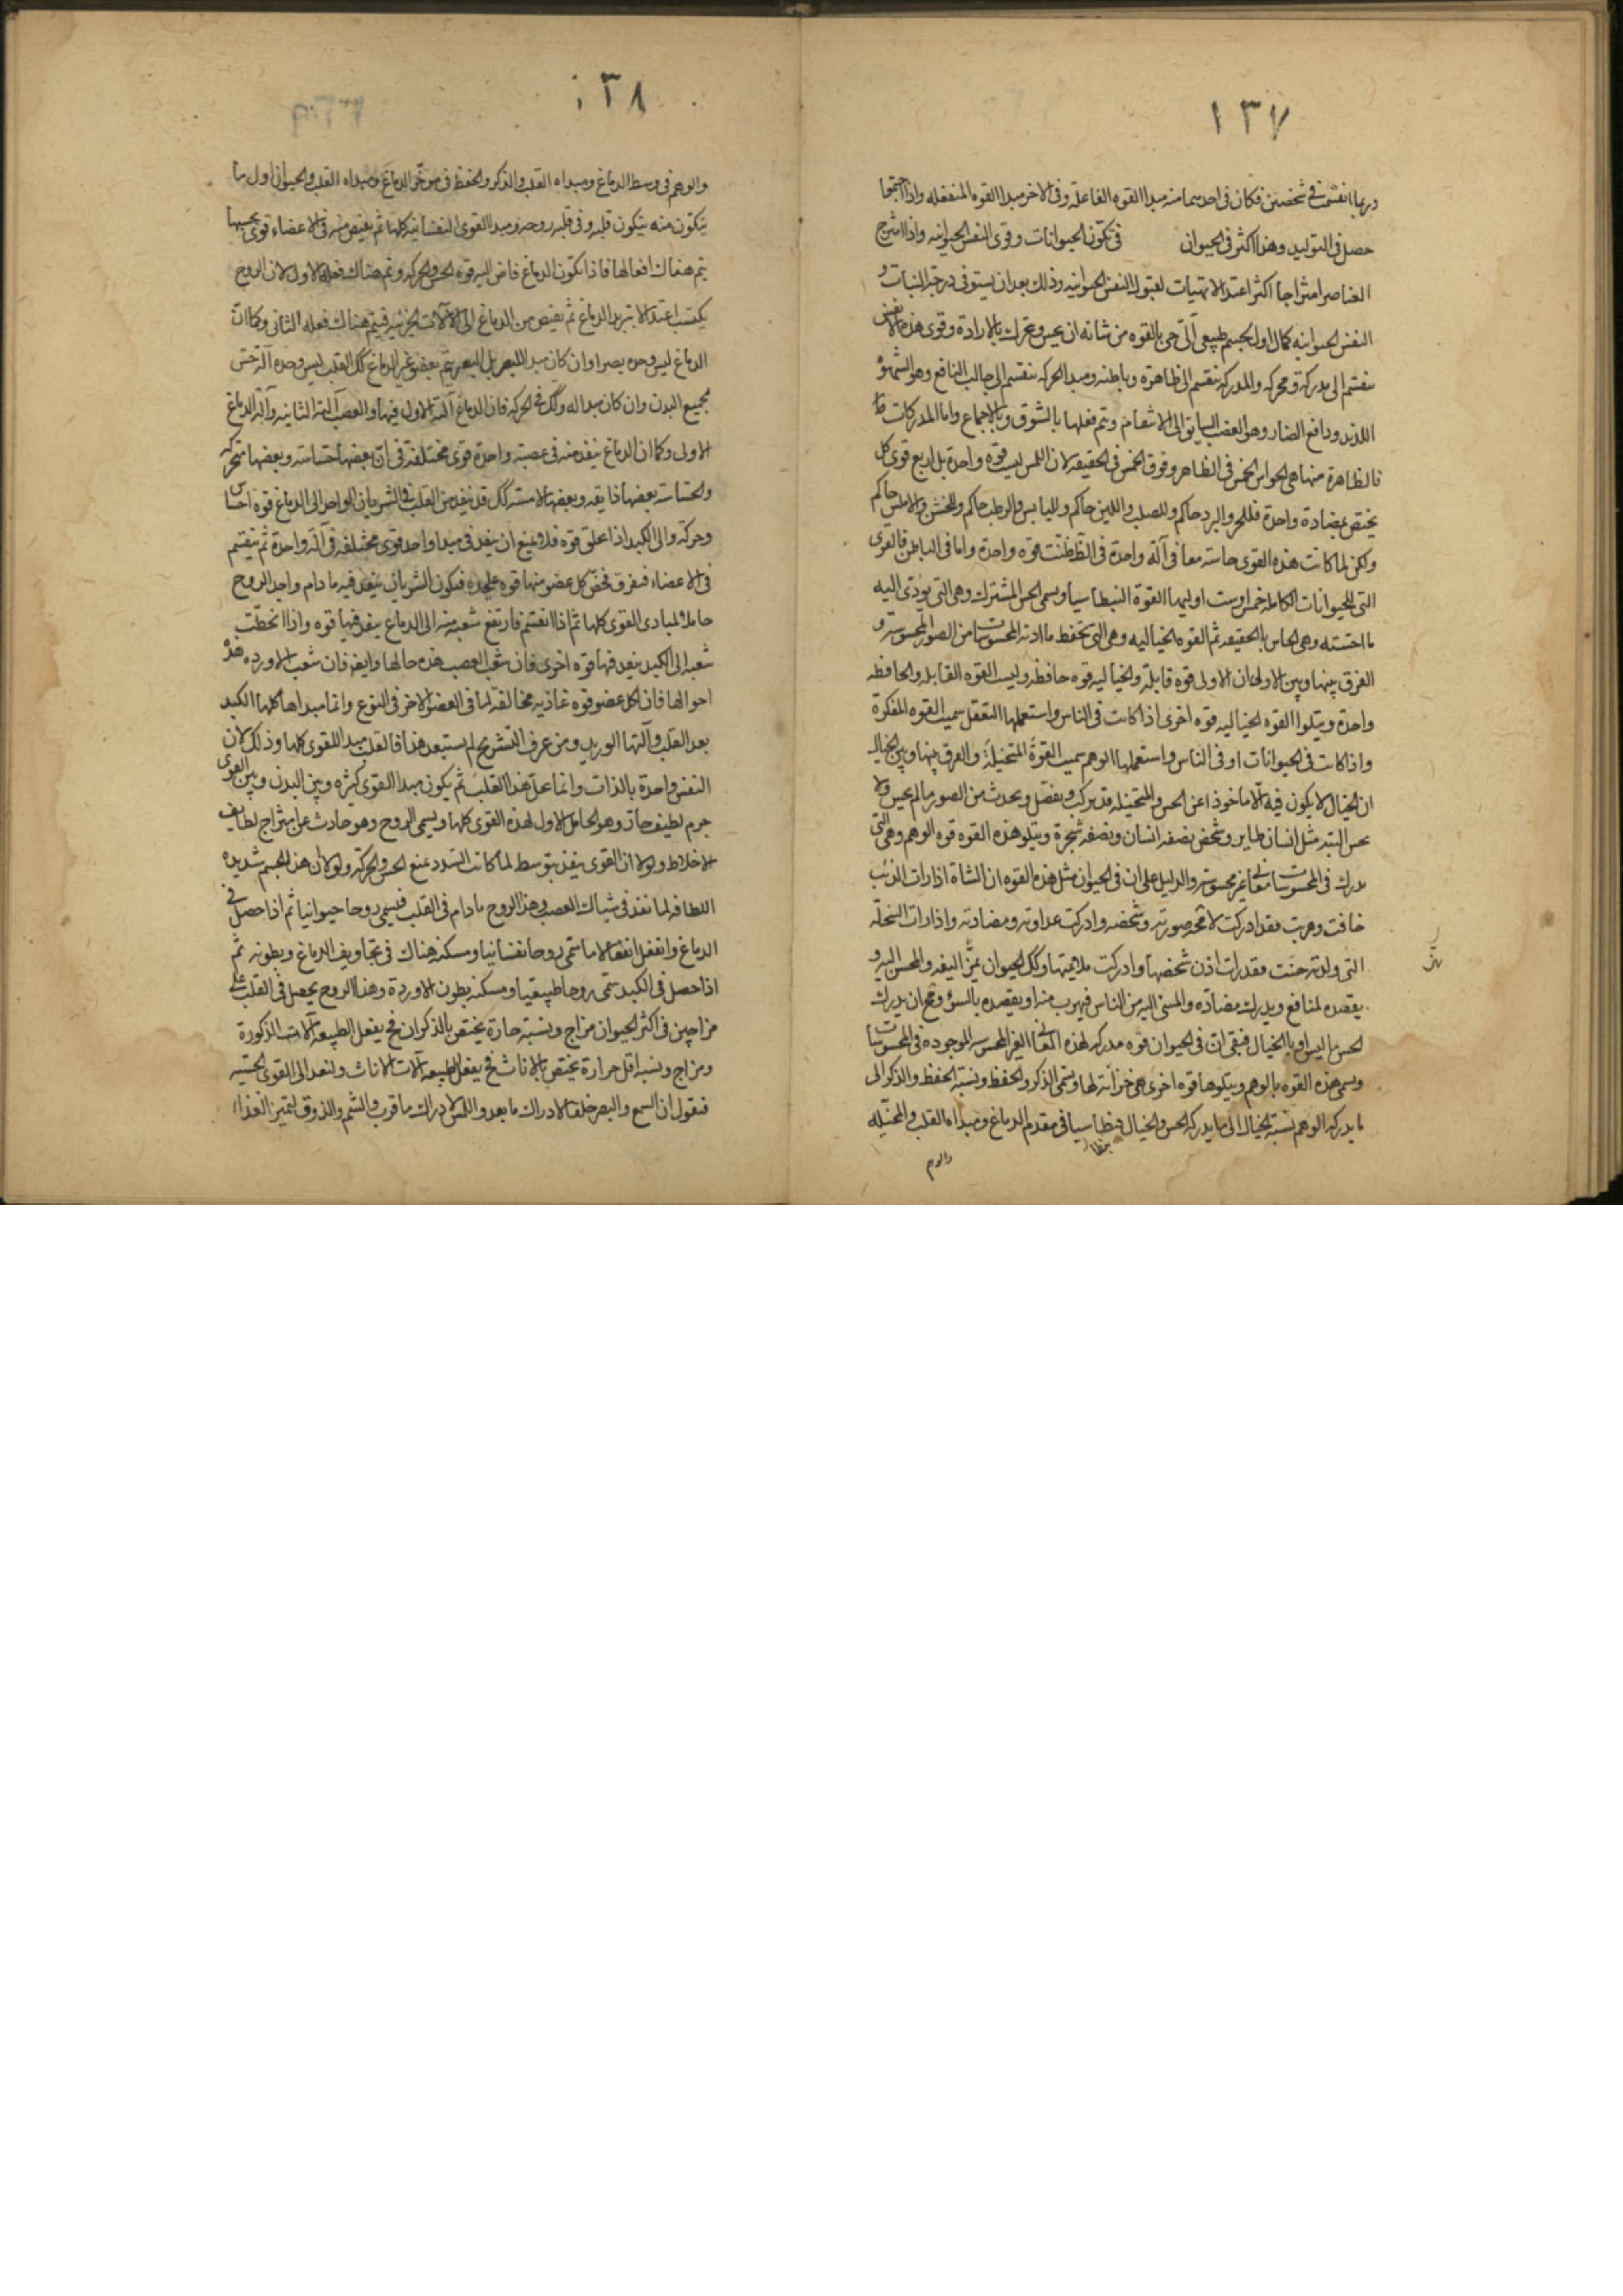 ١٣٧
وربما انقسمت فى شخصين فكان فى احدهما منه مبدا القوه الفاعله وفى الاخر مبدا القوه المنفعله واذا اجتمعا
حصل فى التوليد وهذا اكثر فى الحيوان فى تكون الحيوانات وقوى النفس الحيوانيه واذا امتزج
العناصر امتزاجا اكثر اعتدالا تهيات لقبول النفس الحيوانيه وذلك بعد ان يستوفى درجة النبات و
النفس الحيوانيه كمال اول لجسم طبيعى آلى حى بالقوه من شانه ان يحس ويتحرك بالارادة وقوى هذه النفس
ينقسم الى مدركة ومحركه والمدركه ينقسم الى ظاهرة وباطنه ومبدا الحركه ينقسم الى جالب النافع وهو الشهوة
اللذيد ودافع الضار وهو الغضب السايق الى الانتقام ويتم فعلها بالشوق وبالاجماع واما المدركات
فالظاهرة منها هى الحواس الخمس فى الظاهر وفوق الخمس فى الحقيقه لان اللمس ليست قوة واحدة بل اربع قوى كل
يختص بمضادة واحدة فللحر والبرد حاكم وللصلب واللين حاكم ولليابس والرطب حاكم وللخشن والاملس حاكم
ولكن لما كانت هذه القوى حاسة معا فى آلة واحدة فى الظ ظنت قوه واحدة واما فى الباطن فالقوى
التى للحيوانات الكامله خمس اوست اوليها القوة النبطاسيا ويسمى الحس المشترك وهى التى يؤدى اليه
ما احسته وهى الحاس بالحقيقه ثم القوه الخياليه وهى التى تحفظ ما ادته المحسوسات من الصور المحسوسة و
الفرق بينها وبين الاولى ان الاولى قوه قابلة والخياليه قوه حافظه وليست القوه القابله والحافظه
واحدة ويتلوا القوه الخياليه قوه اخرى اذا كانت فى الناس واستعملها التعقل سميت القوه المفكرة
واذا كانت فى الحيوانات او فى الناس واستعملها الوهم سميت القوة المتخيلة والفرق بينها وبين الخيال
ان الخيال لا يكون فيه الا ماخوذا عن الحس والمتخيله قد يركب ويفصل ويحدث من الصور ما لم يحس ولا
يحس البته مثل انسان طاير وشخص نصفه انسان ونصفه شجرة ويتلو هذه القوه قوه الوهم وهى التى
يدرك فى المحسوسات معانى غير محسوسة والدليل على ان فى الحيوان مثل هذه القوه ان الشاة اذا رات الذئب
خافت وهربت فقد ادركت لا محه صورته وشخصه وادركت عداوته ومضادته واذا رات السخلة
التى ولدته حنت فقد رات اذن شخصها وادركت ملايمتها وكك الحيوان يميز اليفه والمحسن اليه و
يقصده لمنافع ويدرك مضاده والمسىء اليه من الناس فيهرب منه او يقصده بالسؤ ومح ان يدرك
الحس ما ليس او بالخيال فبقى ان فى الحيوان قوه مدركه لهذه المعانى الغير المحسوسه الموجوده فى المحسوسات
ويسمى هذه القوه بالوهم ويتلوها قوه اخرى هى خزانة لها ويسمى الذكر والحفظ ونسبة الحفظ والذكر الى
ما يدركه الوهم نسبة الخيال الى ما يدركه الحس والخيال فنطاسيا فى مقدم الدماغ ومبداه القلب والمتخيله
والوهم
١٣٨
والوهم فى وسط الدماغ ومبداه القلب والذكر والحفظ فى موخر الدماغ ومبداه القلب والحيوان اول ما
يتكون منه يتكون قلبه وفى قلبه روحه ومبدا القوى النفسانيه كلها ثم يفيض منه فى الاعضاء قوى بحسبها
يتم هناك افعالها فاذا تكون الدماغ فاض اليه قوه الحس والحركه وتم هناك فعله الاول لان الروح
يكتسب اعتدالا بتبريد الدماغ ثم يفيض من الدماغ الى الآلات الجزئيه فيتم هناك فعله الثانى وكما ان
الدماغ ليس وحده بصرا وان كان مبدا للبصر بل البصر يتم بعضو غير الدماغ كك القلب ليس وحده آلة حس
جميع البدن وان كان مبدا له وكك فى الحركه فان الدماغ آلته الاولى فيها والعصب آلته الثانيه وآلة الدماغ
الاولى وكما ان الدماغ ينفذ منه فى عصبة واحدة قوى مختلفة فى ان بعضها حساسة وبعضها متحركه
والحساسة بعضها ذايقه وبعضها لامسة كك قد ينفذ من القلب فى الشريان الواحد الى الدماغ قوه احساس
وحركة والى الكبد اذا خلق قوه فلا يمتنع ان ينفذ فى مبدا واحد قوى مختلفه فى آلة واحدة ثم ينقسم
فى الاعضاء فيفرق فيخص كل عضو منها قوه عليحده فيكون الشريان ينفذ فيه ما دام واحد الروح
حاملا لمبادى القوى كلها ثم اذا انقسم فارتفع شعبه منه الى الدماغ ينفذ فيها قوه واذا انحطت
شعبه الى الكبد ينفذ فيها قوه اخرى فان شعب العصب هذه حالها وايضا فان شعب الاورده هذه
احوالها فان لكل عضو قوه غاذيه مخالفة لما فى العضو الاخر فى النوع وانما مبداها كلها الكبد
بعد القلب وآلتها الوريد ومن عرف التشريح لم يستبعد هذا فالقلب مبدا للقوى كلها وذلك لان
النفس واحدة بالذات وانما محل هذا القلب ثم يكون مبدا القوى كثيره وبين البدن وبين القوى
جرم لطيف حار وهو الحامل الاول لهذه القوى كلها ويسمى الروح وهو حادث عن امتزاج لطايف
الاخلاط ولولا ان القوى ينفذ بتوسط لما كانت السدد يمنع الحس والحركة ولولا ان هذا الجسم شديد
اللطافه لما نفذ فى شباك العصب وهذا الروح ما دام فى القلب فيسمى روحا حيوانيا ثم اذا حصل فى
الدماغ وانفعل انفعالا ما سمى روحا نفسانيا ومسكنه هناك فى تجاويف الدماغ وبطونه ثم
اذا حصل فى الكبد سمى روحا طبيعيا ومسكنه بطون الاوردة وهذا الروح يحصل فى القلب على
مزاجين فى اكثر الحيوان مزاج ونسبة حارة يختص بالذكران فح يفعل الطبيعه آلات الذكورة
ومزاج ونسبه اقل حرارة يختص بالاناث فح يفعل الطبيعه آلات الاناث ولنعد الى القوى الحسيه
فنقول ان السمع والبصر خلقا لادراك ما بعد واللمس لادراك ما قرب والشم والذوق لتميز الغذاء